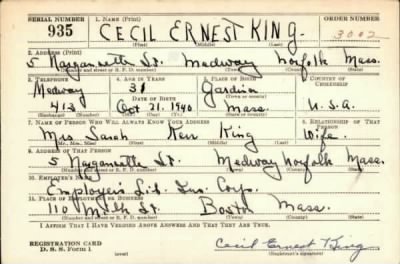 SERIAL NUMBER 1. NAME (Print) ORDER NUMBER
935 CECIL ERNEST KING. 3002
(First) (Middle) (Last)
2. ADDRESS (Print)
5 St. Medway Norfolk Mass.
(Number and street or R. F. D. number) (Town) (County) (State)
3. TELEPHONE 4. AGE IN YEARS 5. PLACE OF BIRTH 6. COUNTRY OF CITIZENSHIP
Medway 31 Gardner
DATE OF BIRTH (Town or county)
413 Oct 21. 1940 Mass. U.S.A.
(Exchange) (Number) (Mo.) (Day) (Yr.) (State or country)
7. NAME OF PERSON WHO WILL ALWAYS KNOW YOUR ADDRESS 8. RELATIONSHIP OF THAT PERSON
Mrs Sarah Kerr King Wife.
(Mr., Mrs., Miss) (First) (Middle) (Last)
9. ADDRESS OF THAT PERSON
5 St. Medway Norfolk Mass.
(Number and street or R. F. D. number) (Town) (County) (State)
10. EMPLOYER'S NAME
Employers Lib. Ins. Corp.
11. PLACE OF EMPLOYMENT OR BUSINESS
110 Milk St. Boston Mass.
(Number and street or R. F. D. number) (Town) (County) (State)
I AFFIRM THAT I HAVE VERIFIED ABOVE ANSWERS AND THAT THEY ARE TRUE.
REGISTRATION CARD
D. S. S. Form 1 Cecil Ernest King
(Registrant's signature)